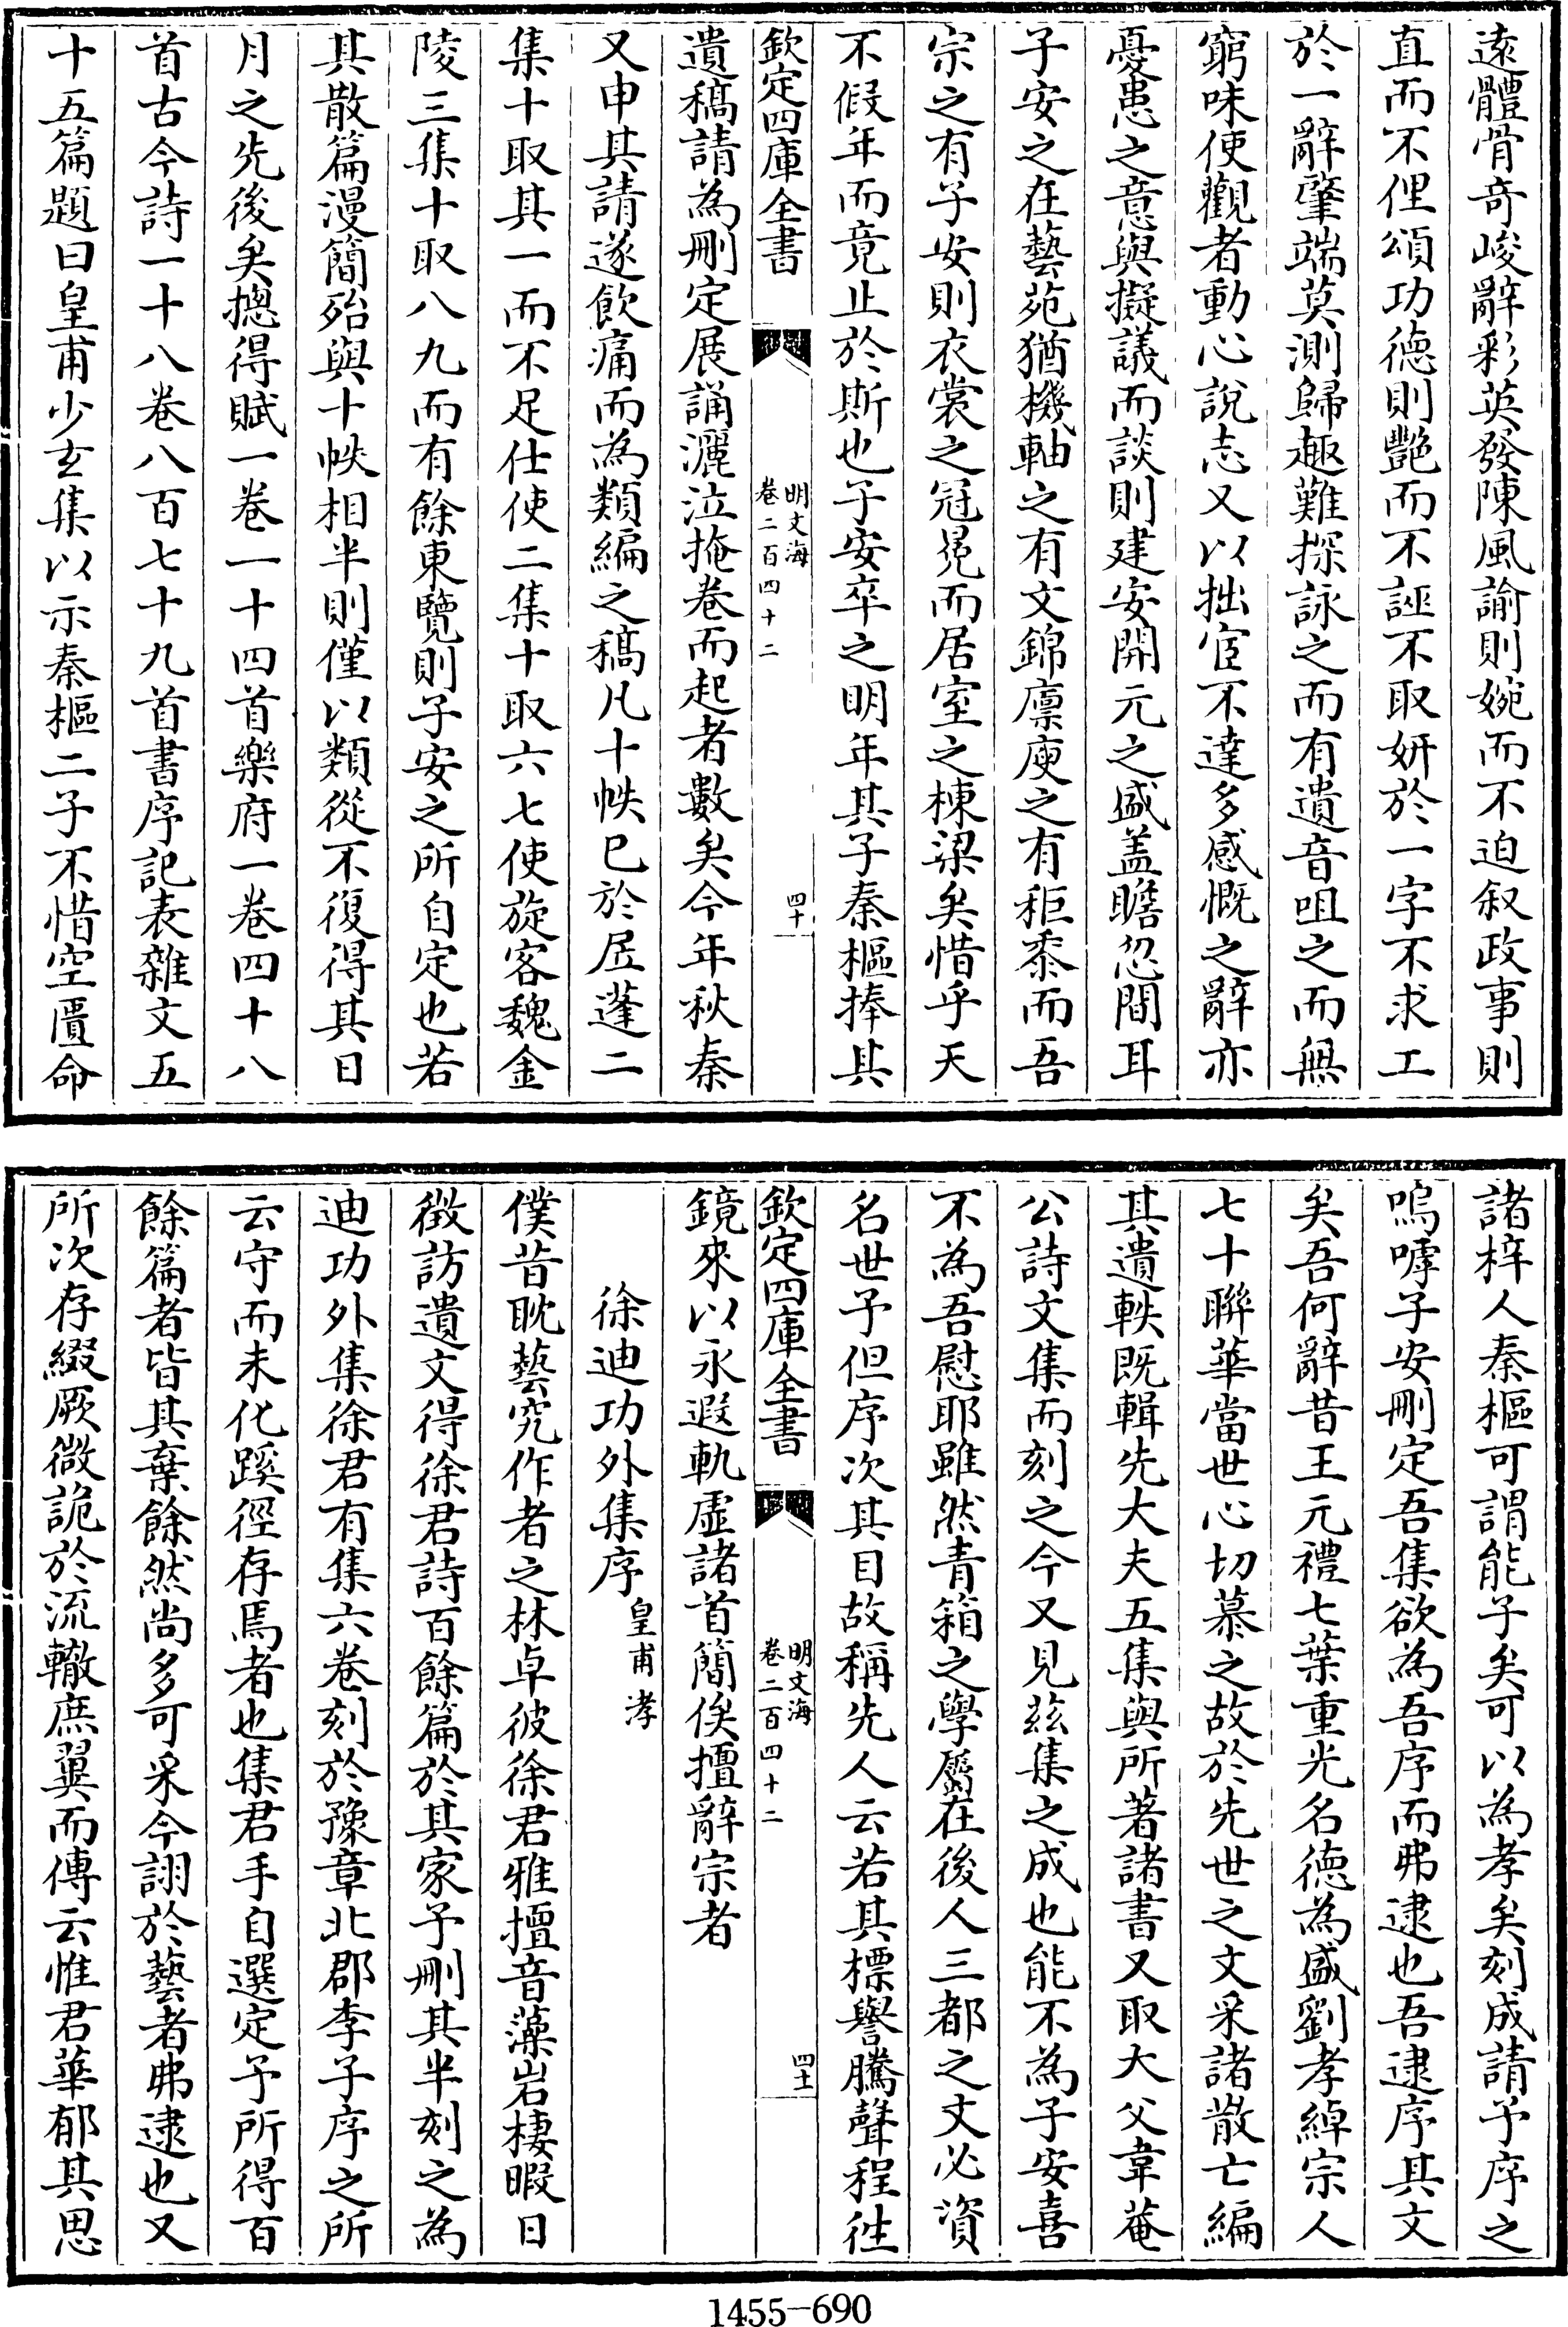 遠體骨奇峻辭彩英發陳風諭則婉而不迫叙政事則
直而不俚頌功德則艷而不誣不取妍於一字不求工
於一辭肇端莫測歸趣難探詠之而有遺音咀之而無
窮味使觀者動心說志又以拙宦不達多感慨之辭亦
憂患之意與擬議而談則建安開元之盛盖瞻忽間耳
子安之在藝苑猶機軸之有文錦廪庾之有秬黍而吾
宗之有子安則衣裳之冠冕而居室之棟梁矣惜乎天
不假年而竟止於斯也子安卒之明年其子秦樞捧其
欽定四庫全書
明文海
卷二百四十二
四十
遺稿請為刪定展誦灑泣掩卷而起者數矣今年秋秦
又申其請遂飲痛而為類編之稿凡十帙已於居蓬二
集十取其一而不足仕使二集十取六七使旋客魏金
陵三集十取八九而有餘東覽則子安之所自定也若
其散篇漫簡殆與十帙相半則僅以類從不復得其日
月之先後矣摠得賦一卷一十四首樂府一卷四十八
首古今詩一十八卷八百七十九首書序記表雜文五
十五篇題曰皇甫少玄集以示秦樞二子不惜空匱命
諸梓人秦樞可謂能子矣可以為孝矣刻成請予序之
嗚嘑子安刪定吾集欲為吾序而弗逮也吾逮序其文
矣吾何辭昔王元禮七葉重光名德為盛劉孝綽宗人
七十聯華當世心切慕之故於先世之文采諸散亡編
其遺軼既輯先大夫五集與所著諸書又取大父葦菴
公詩文集而刻之今又見兹集之成也能不為子安喜
不為吾慰耶雖然青箱之學屬在後人三都之文必資
名世予但序次其目故稱先人云若其標譽騰聲程徃
欽定四庫全書
明文海
卷二百四十二
四十一
鏡來以永遐軌虛諸首簡俟擅辭宗者
徐迪功外集序皇甫涍
僕昔耽藝究作者之林卓彼徐君雅擅音藻岩棲暇日
徴訪遺文得徐君詩百餘篇於其家予刪其半刻之為
迪功外集徐君有集六卷刻於豫章北郡李子序之所
云守而未化蹊徑存焉者也集君手自選定予所得百
餘篇者皆其棄餘然尚多可采今詡於藝者弗逮也又
所次存綴厥微詭於流轍庶翼而傳云惟君華郁其思
1455-690